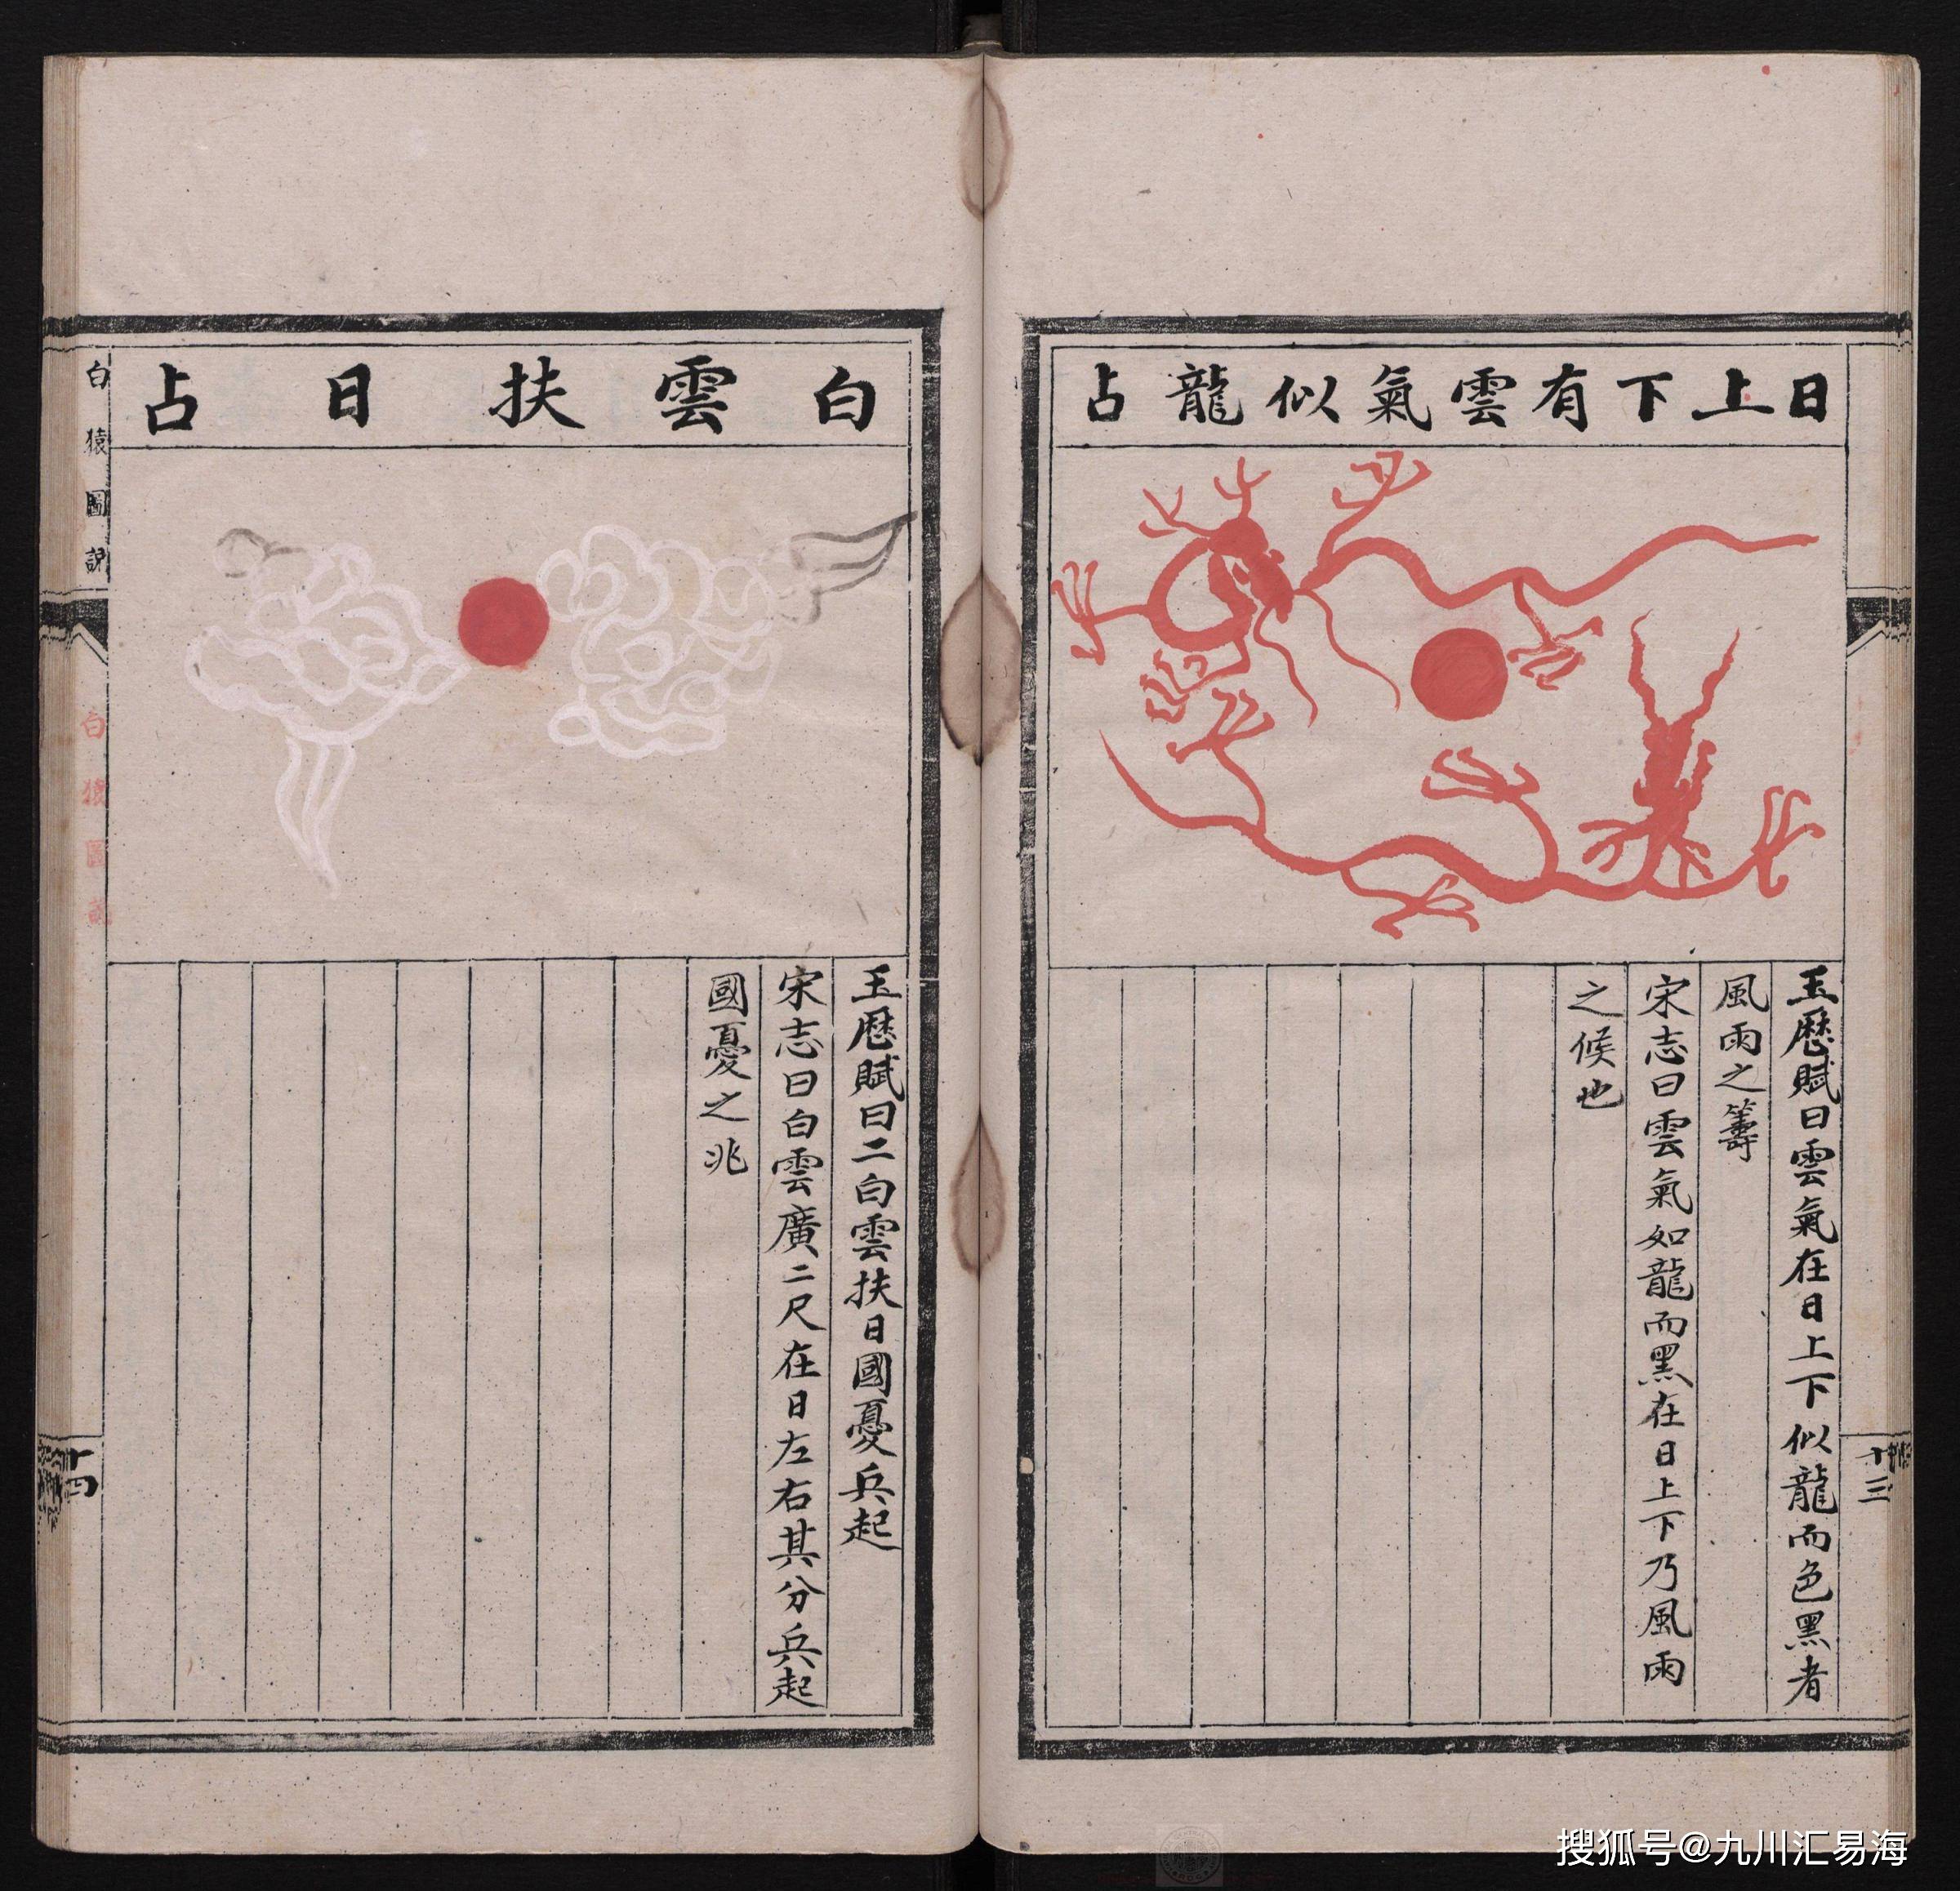 日上下有雲氣似龍占
玉歷賦曰雲氣在日上下似龍而色黑者
風雨之籌
宋志曰雲氣如龍而黑在日上下乃風雨
之候也
十三
白雲扶日占
玉歷賦曰二白雲扶日國憂兵起
宋志曰白雲廣二尺在日左右其分兵起
國憂之兆
白猿圖說
白猿圖說
十四
搜狐号@九川汇易海